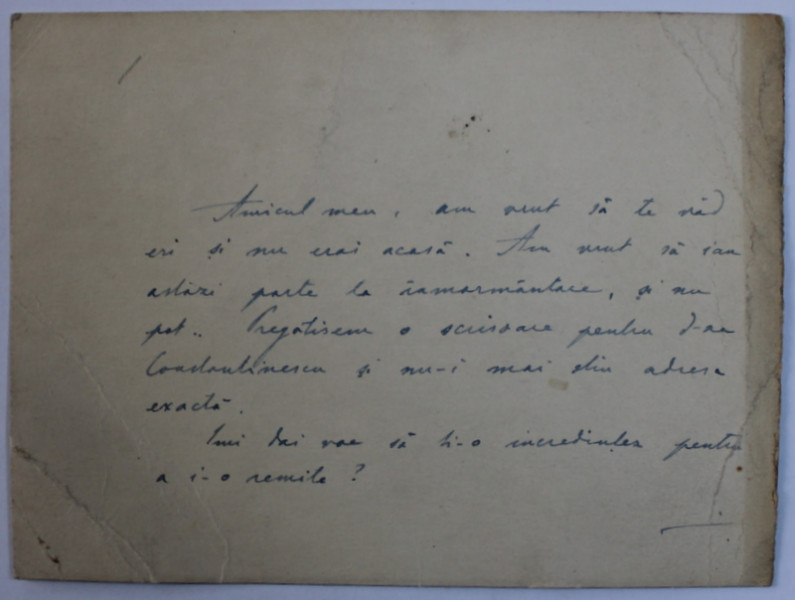 Amicul meu, am vrut să te văd
eri și nu erai acasă. Am vrut să iau
astăzi parte la înmormântare, și nu
pot.. Pregătisem o scrisoare pentru d-na
Constantinescu și nu-i mai știu adresa
exactă.
Îmi dai voe să ți-o incredințez pentru
a i-o remite?